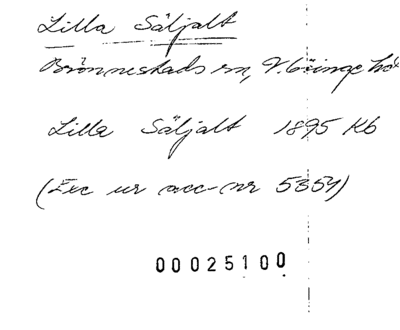 Lilla Säljalt
Brönnestads sn, V. Göinge hd
Lilla Säljalt 1895 Kb
(Exc ur acc-nr 5354)
00025100